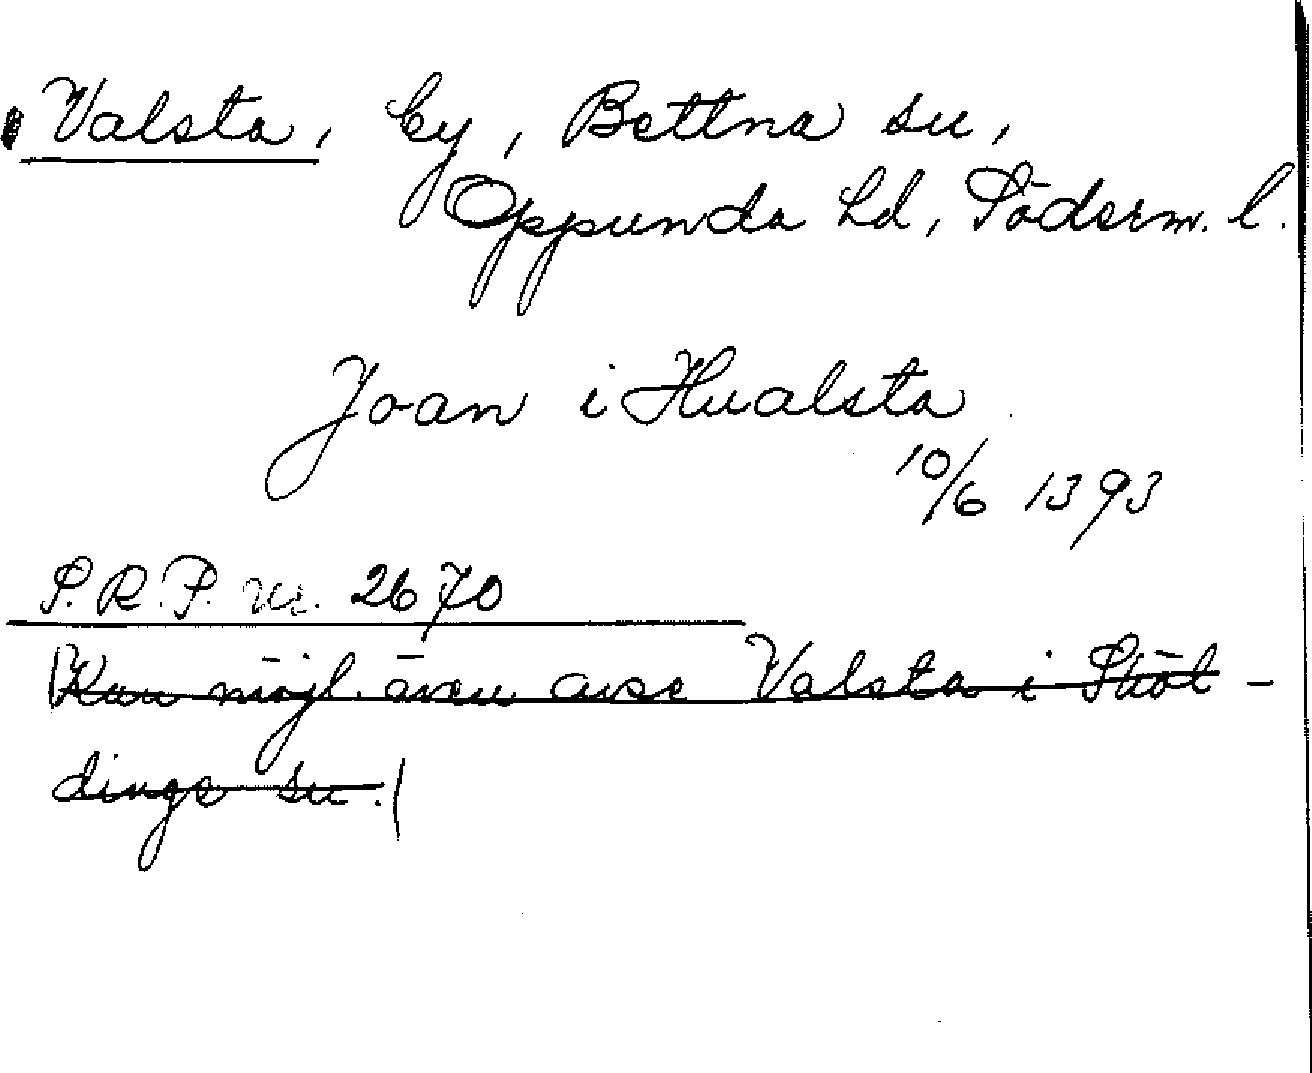 Valsta, by, Bettna sn,
Oppunda hd, Söderm. l.
Joan i Hualsta
10/6 1393
S.R.P. nr. 2670
(Kan möjl. även avse Valsta i Sköl-
dinge sn.)